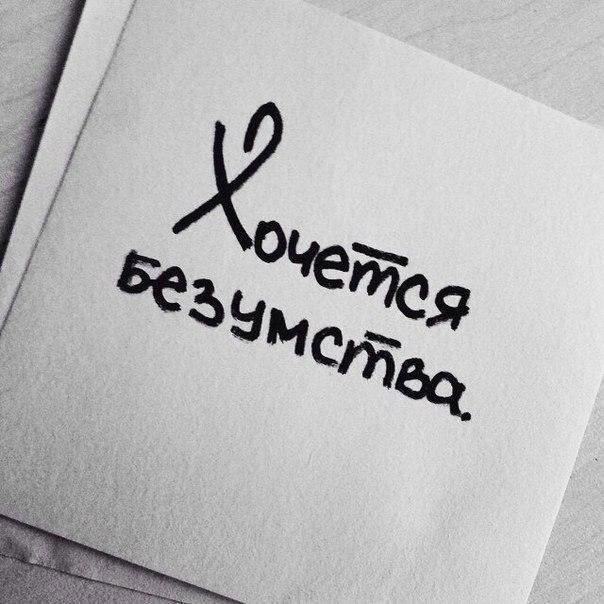 Хочется
безумства.